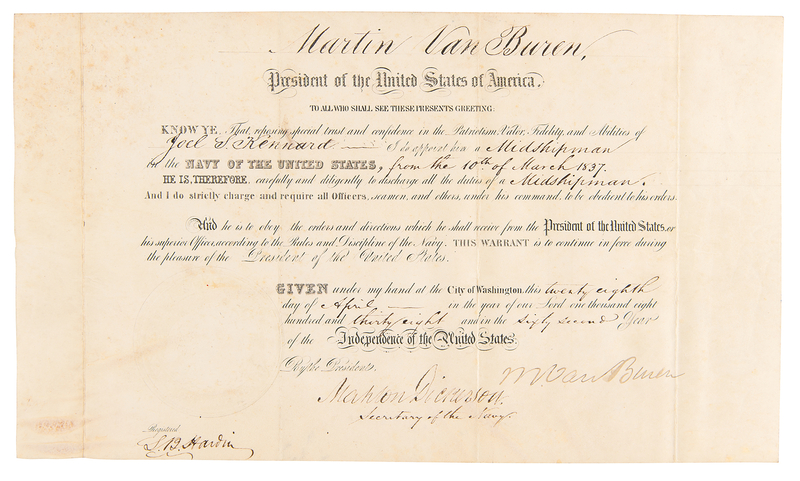 Martin Van Buren,
President of the United States of America.
TO ALL WHO SHALL SEE THESE PRESENTS GREETING:
KNOW YE, That, reposing special trust and confidence in the Patriotism, Valor, Fidelity, and Abilities of
Joel S. Kennard I do appoint him a Midshipman
in the NAVY OF THE UNITED STATES, from the 10th of March 1837.
HE IS, THEREFORE, carefully and diligently to discharge all the duties of a Midshipman.
And I do strictly charge and require all Officers, seamen, and others, under his command, to be obedient to his orders.
And he is to obey the orders and directions which he shall receive from the President of the United States, or
his superior Officer, according to the Rules and Discipline of the Navy. THIS WARRANT is to continue in force during
the pleasure of the President of the United States.
GIVEN under my hand at the City of Washington, this twenty eighth
day of April in the year of our Lord one thousand eight
hundred and thirty eight and in the sixty second Year
of the Independence of the United States.
By the President.
M. Van Buren
Mahlon Dickerson.
Secretary of the Navy.
Registered
L. B. Hardin